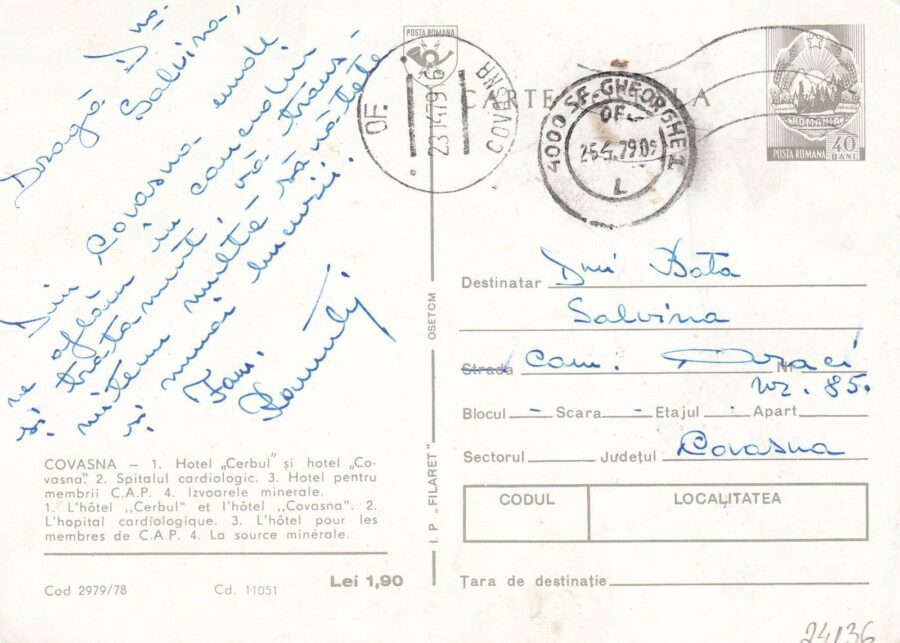 Dragă Dna.
Salvina,
Din Covasna unde
ne aflăm în concediu
și tratament vă trans-
mitem multă sănătate
și numai bucurii.
Fam.
COVASNA — 1. Hotel „Cerbul" și hotel „Co-
vasna". 2. Spitalul cardiologic. 3. Hotel pentru
membrii C.A.P. 4. Izvoarele minerale.
1. L'hôtel ,,Cerbul" et l'hôtel ,,Covasna". 2.
L'hopital cardiologique. 3. L'hôtel pour les
membres de C.A.P. 4. La source minérale.
Cod 2979/78 Cd. 11051 Lei 1,90
I. P „FILARET" OSETCM
POSTA ROMANA
OF. COVASNA
CARTE
4000 SF. GHEORGHE 1
OF
79.09
L
ROMANIA
POSTA ROMANA 40 BANI
Destinatar Dnei Bota
Salvina
Strada com: Araci Nr
nr. 85.
Blocul - Scara - Etajul - Apart
Sectorul Județul Covasna
CODUL LOCALITATEA
Țara de destinație
24/36